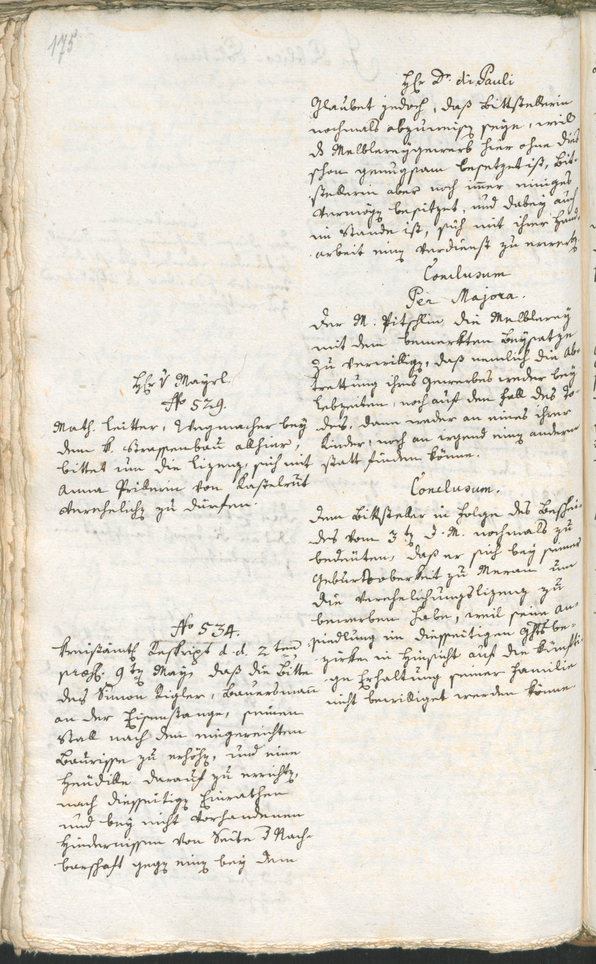 175
Hr Dr. di Pauli
Glaubet jedoch, daß Bittstellerin
nochmals abzuweisen seye, weil
das Melblereygewerb hier ohne dies
schon genugsam besetzet ist, Bit-
stellerin aber noch immer einiges
Vermögen besitzet, und dabey auch
im Stande ist, sich mit ihrer Hand
arbeit einen Verdienst zu erwerben.
Conclusum
Per Majora.
Der M. Pitschlin die Melblerey
mit dem bemerkten Beysatze
zu verwilligen, daß nemlich die Ab-
trettung ihres Gewerbes weder bey
Lebzeiten, noch auf den Fall des To-
des, dann weder an eines ihrer
Kinder, noch an irgend einen andern
statt finden könne.
Hr v Mayrl.
No 529.
Math. Leitter, Wegmacher bey
dem k. Strassenbau allhier,
bittet um die Lizenz, sich mit
Anna Priberin von Kastelrut
verehelichen zu dürfen.
Conclusum.
Dem Bittsteller in Folge des Beschei-
des vom 3ten d. M. nochmals zu
bedeuten, daß er sich bey seiner
Geburtsoberkeit zu Meran um
die Verehelichungslizenz zu
bewerben habe, weil seine An-
siedlung im diesseitigen Ghts be-
zirken in Hinsicht auf die künfti-
ge Erhaltung seiner Familie
nicht bewilliget werden könne.
No 534.
Kreisämtl. Reskript d. d. 2ten
praes. 9ten May, daß die Bitte
des Simon Rigler, Bauersmann
an der Eisenstange, seinen
Stall nach dem eingereichten
Baurisse zu erhöhen, und eine
Heudille darauf zu errichten,
nach diesseitigen Einrathen
und bey nicht vorhandenen
Hindernissen von Seite der Nach-
barschaft gegen einen bey dem